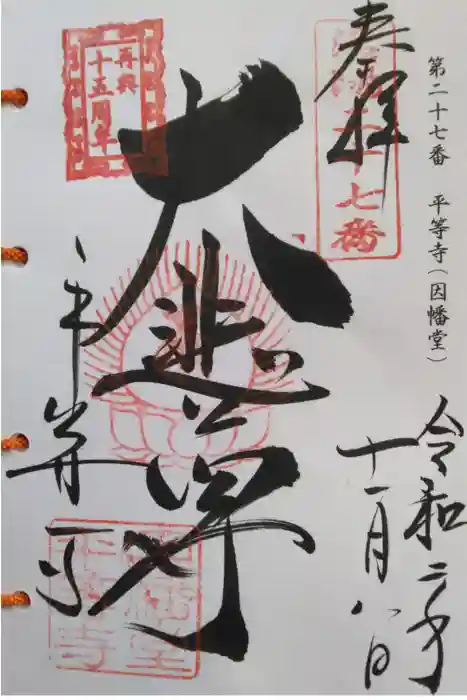 第二十七番 平等寺(因幡堂)
奉拝
洛陽二十七番
令和二年
十一月八日
大悲尊
再興
十五周年
平等寺
因幡堂
平等寺